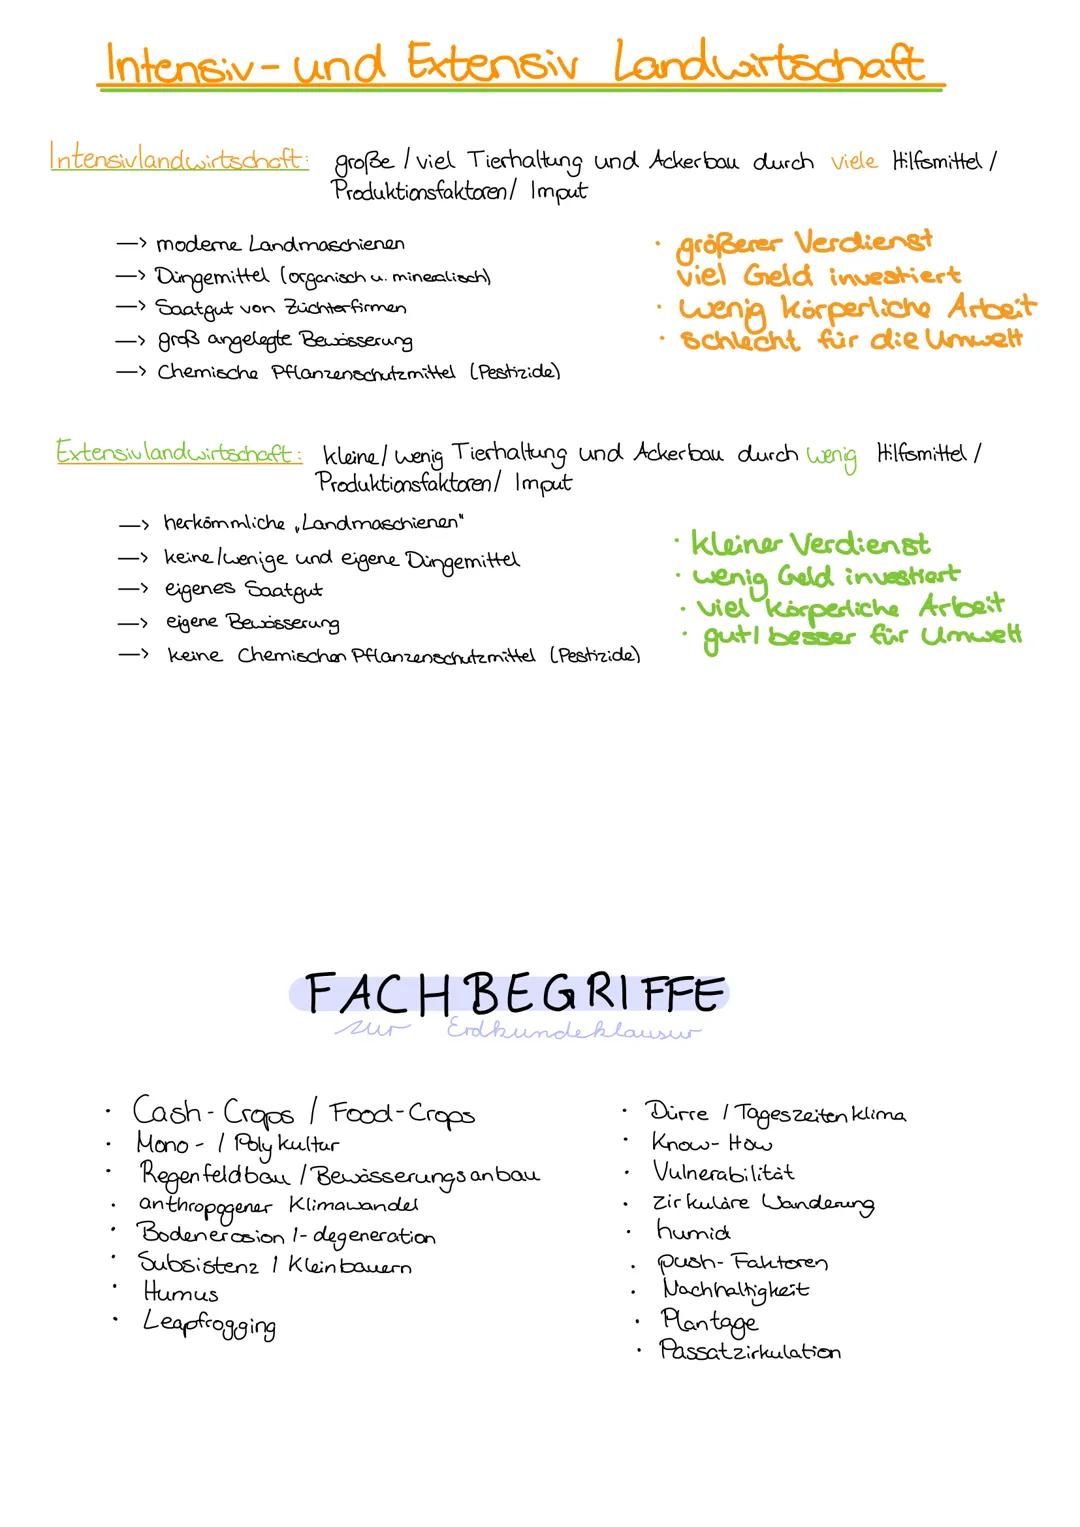 Intensiv- und Extensiv Landwirtschaft
Intensivlandwirtschaft: große / viel Tierhaltung und Ackerbau durch viele Hilfsmittel /
Produktionsfaktoren/ Imput
—> moderne Landmaschienen
—> Düngemittel (organisch u. mineralisch)
—> Saatgut von Züchterfirmen
—> groß angelegte Bewässerung
—> Chemische Pflanzenschutzmittel (Pestizide)
· größerer Verdienst
viel Geld investiert
· wenig körperliche Arbeit
· schlecht für die Umwelt
Extensivlandwirtschaft: kleine/ wenig Tierhaltung und Ackerbau durch wenig Hilfsmittel /
Produktionsfaktoren/ Imput
—> herkömmliche „Landmaschienen"
—> keine/wenige und eigene Düngemittel
—> eigenes Saatgut
—> eigene Bewässerung
—> keine Chemischen Pflanzenschutzmittel (Pestizide)
· kleiner Verdienst
· wenig Geld investiert
· viel körperliche Arbeit
· gut/ besser für Umwelt
FACHBEGRIFFE
zur Erdkundeklausur
· Cash-Crops / Food-Crops
· Mono- / Polykultur
· Regenfeldbau / Bewässerungsanbau
· anthropogener Klimawandel
· Bodenerosion /-degeneration
· Subsistenz / Kleinbauern
· Humus
· Leapfrogging
· Dürre / Tageszeitenklima
· Know-How
· Vulnerabilität
· zirkuläre Wanderung
· humid
· push-Faktoren
· Nachhaltigkeit
· Plantage
· Passatzirkulation